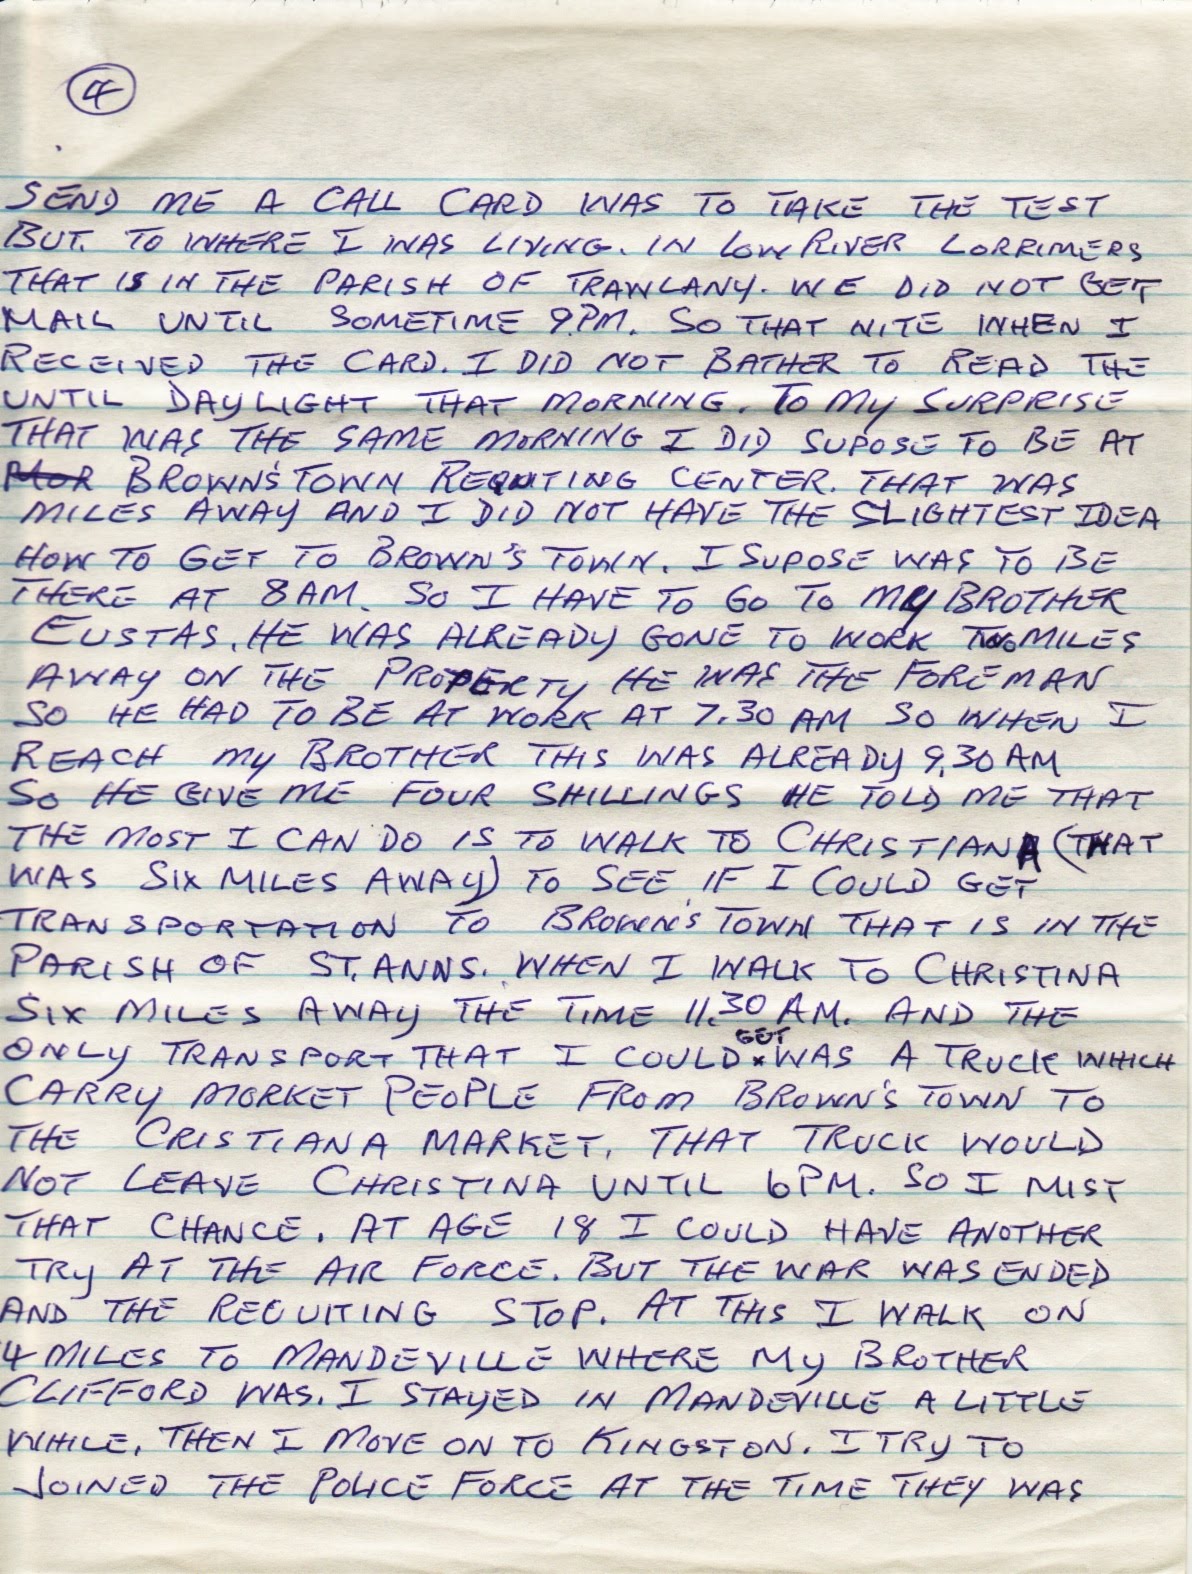 4
SEND ME A CALL CARD WAS TO TAKE THE TEST
BUT. TO WHERE I WAS LIVING. IN LOW RIVER LORRIMERS
THAT IS IN THE PARISH OF TRAWLANY. WE DID NOT GET
MAIL UNTIL SOMETIME 9.PM. SO THAT NITE WHEN I
RECEIVED THE CARD. I DID NOT BATHER TO READ THE
UNTIL DAYLIGHT THAT MORNING. TO MY SURPRISE
THAT WAS THE SAME MORNING I DID SUPOSE TO BE AT
BROWN'S TOWN REQUTING CENTER. THAT WAS
MILES AWAY AND I DID NOT HAVE THE SLIGHTEST IDEA
HOW TO GET TO BROWN'S TOWN. I SUPOSE WAS TO BE
THERE AT 8 AM. SO I HAVE TO GO TO MY BROTHER
EUSTAS. HE WAS ALREADY GONE TO WORK TWO MILES
AWAY ON THE PROPERTY HE WAS THE FOREMAN
SO HE HAD TO BE AT WORK AT 7.30 AM SO WHEN I
REACH MY BROTHER THIS WAS ALREADY 9.30 AM
SO HE GIVE ME FOUR SHILLINGS HE TOLD ME THAT
THE MOST I CAN DO IS TO WALK TO CHRISTIANA (THAT
WAS SIX MILES AWAY) TO SEE IF I COULD GET
TRANSPORTATION TO BROWN'S TOWN THAT IS IN THE
PARISH OF ST. ANNS. WHEN I WALK TO CHRISTINA
SIX MILES AWAY THE TIME 11.30 AM. AND THE
ONLY TRANSPORT THAT I COULD GET x WAS A TRUCK WHICH
CARRY MORKET PEOPLE FROM BROWN'S TOWN TO
THE CRISTIANA MARKET. THAT TRUCK WOULD
NOT LEAVE CHRISTINA UNTIL 6PM. SO I MIST
THAT CHANCE. AT AGE 18 I COULD HAVE ANOTHER
TRY AT THE AIR FORCE. BUT THE WAR WAS ENDED
AND THE RECUITING STOP. AT THIS I WALK ON
4 MILES TO MANDEVILLE WHERE MY BROTHER
CLIFFORD WAS. I STAYED IN MANDEVILLE A LITTLE
WHILE. THEN I MOVE ON TO KINGSTON. I TRY TO
JOINED THE POLICE FORCE AT THE TIME THEY WAS